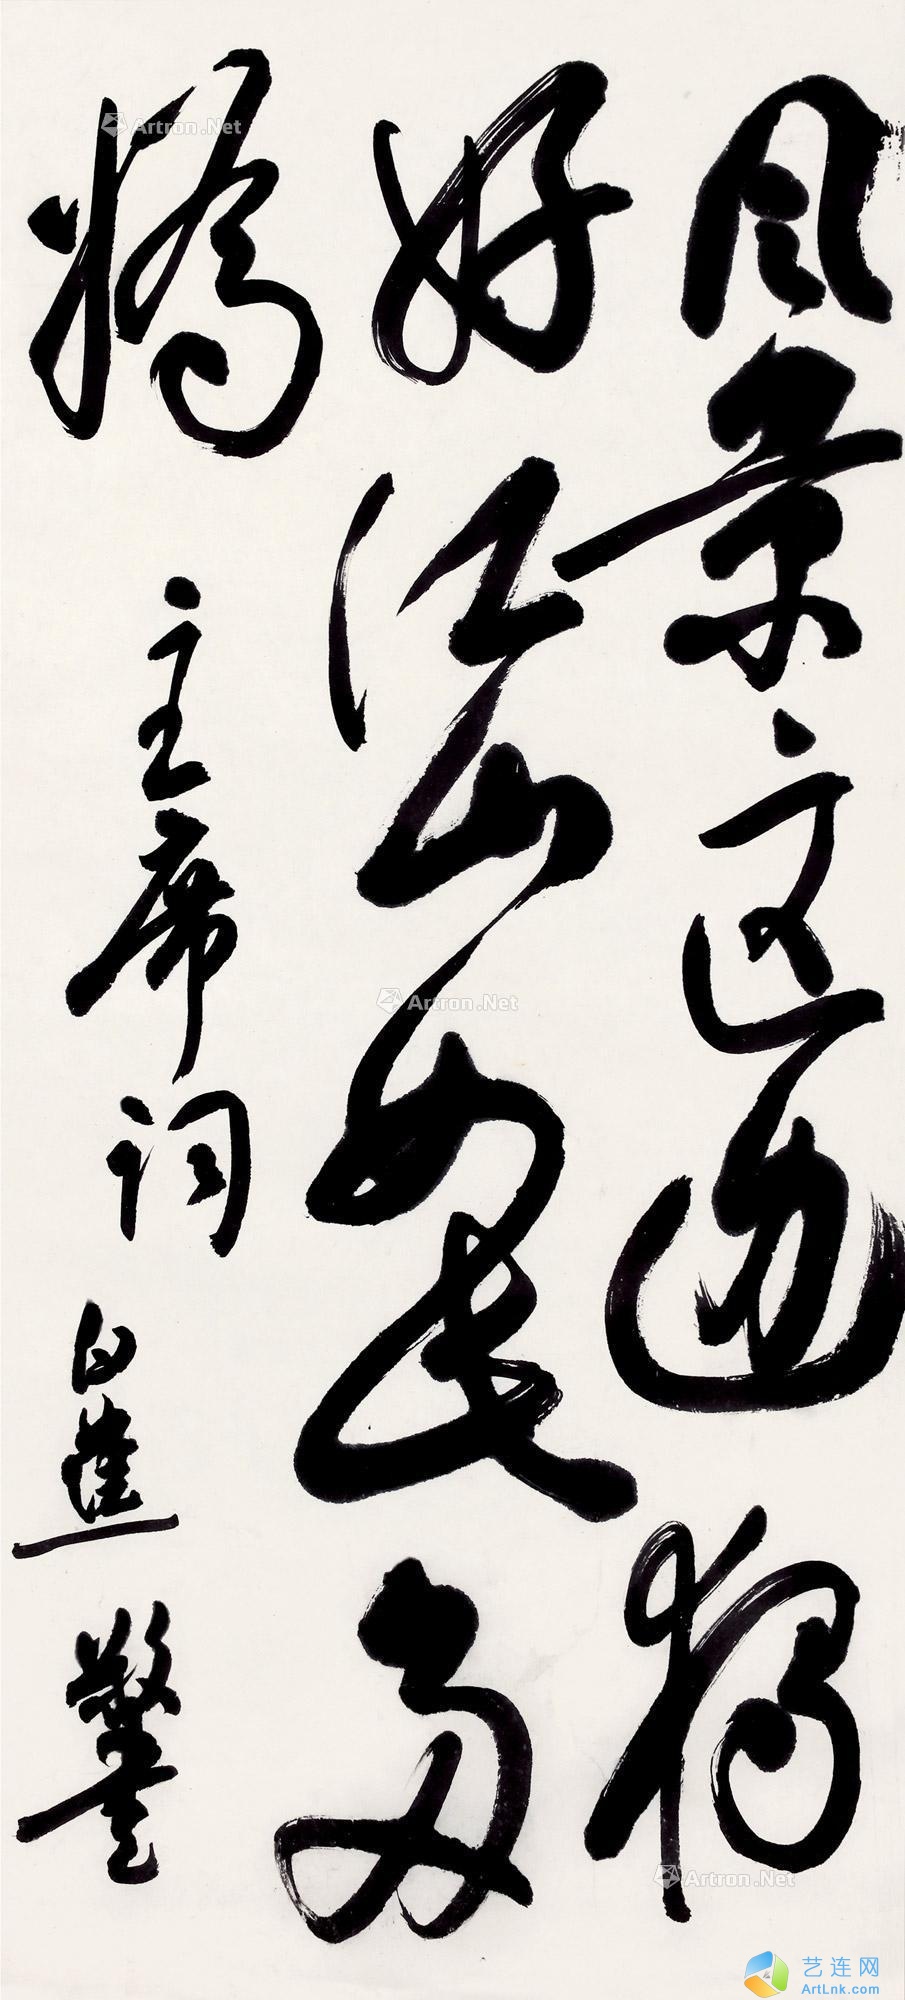 风景这边独
好江山如此多
娇
主席词 白蕉敬书
Artron.Net
Artron.Net
Artron.Net
艺连网
ArtLnk.com